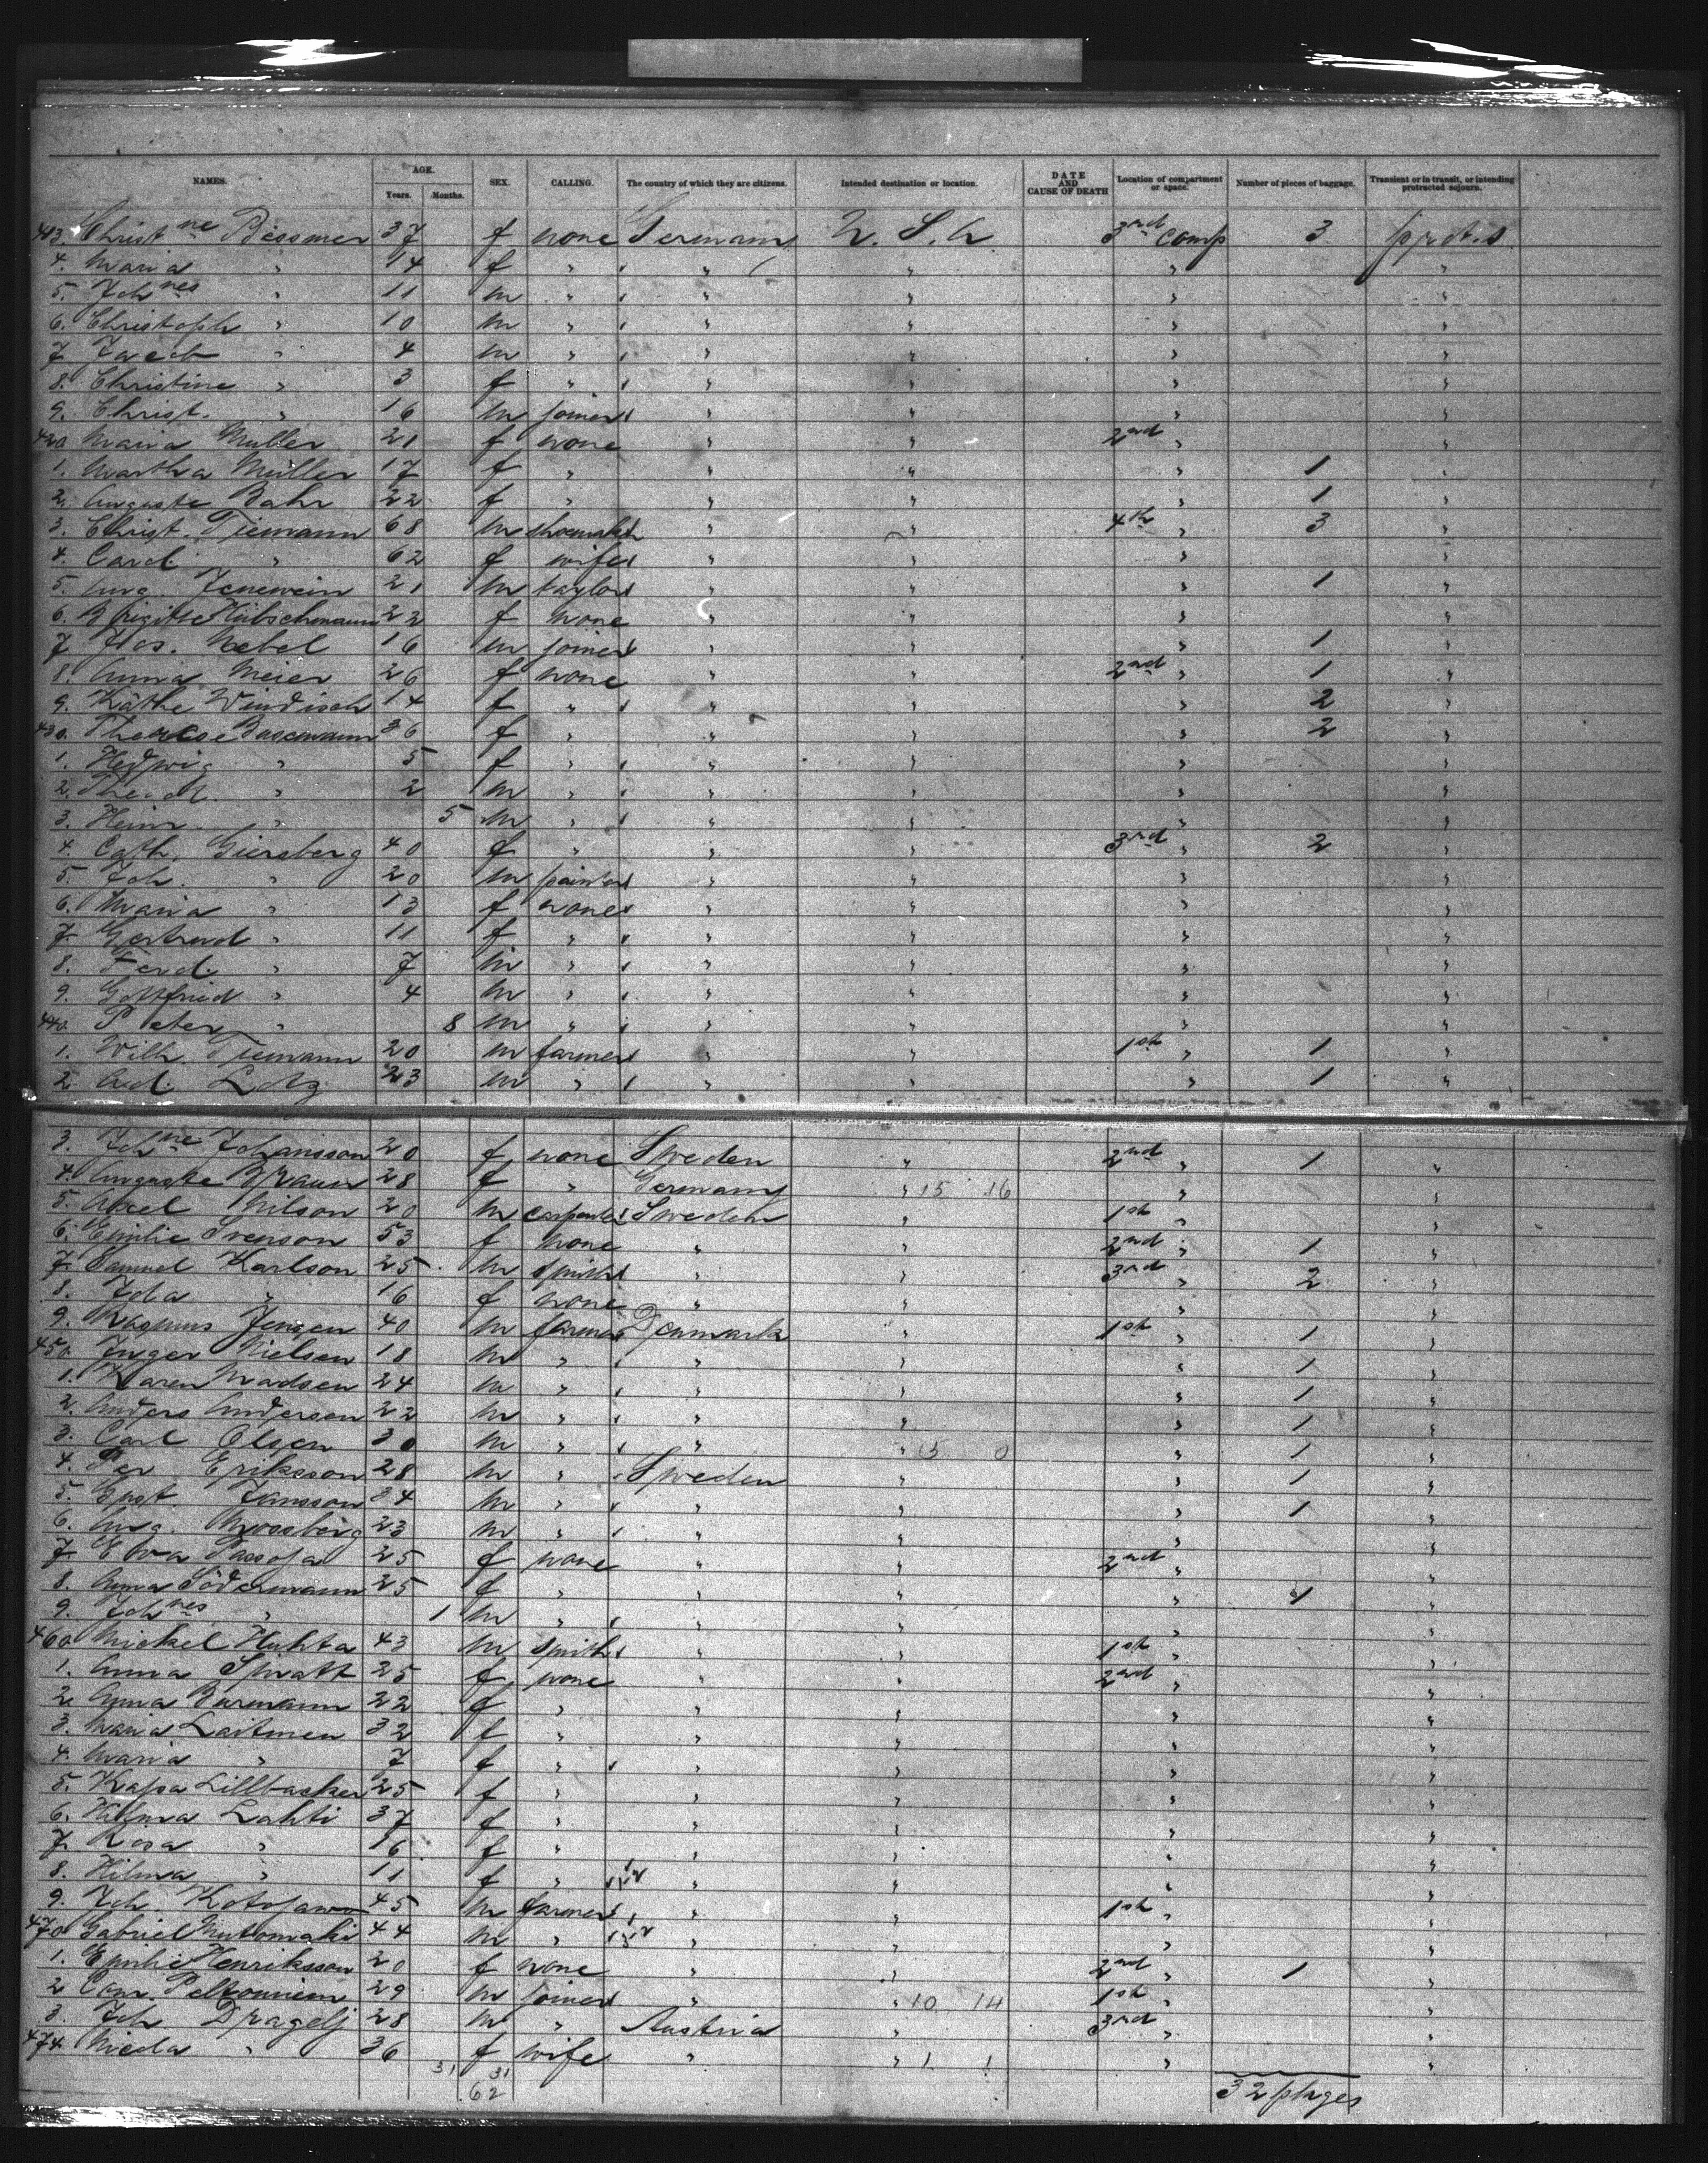 NAMES. AGE. Years. Months. SEX. CALLING. The country of which they are citizens. Intended destination or location. DATE AND CAUSE OF DEATH Location of compartment or space. Number of pieces of baggage. Transient or in transit, or intending protracted sojourn.
413. Christne Bessmer 37 f none Germany U. S. A. 3rd comp 3 prot. s
4. Maria " 14 f " " " " "
5. Johnes " 11 m " " " " "
6. Christoph " 10 m " " " " "
7. Jacob " 4 m " " " " "
8. Christine " 3 f " " " " "
9. Christ. " 16 m joiner " " " "
420 Maria Müller 21 f none " " 2nd " "
1. Martha Müller 17 f " " " " 1 "
2. Auguste Bahr 22 f " " " " 1 "
3. Christ. Tiemann 68 m shoemaker " " 4th " 3 "
4. Carol. " 62 f wife " " " "
5. Aug. Jenewein 21 m taylor " " " 1 "
6. Brigitte Hübschmann 22 f none " " " "
7 Jos. Nebel 16 m joiner " " " 1 "
8. Anna Meier 26 f none " " 2nd " 1 "
9. Käthe Windisch 14 f " " " " 2 "
430. Therese Busemann 36 f " " " " 2 "
1. Hedwig " 5 f " " " " "
2. Theod. " 2 m " " " " "
3. Heinr. " 5 m " " " " "
4. Cath. Giersberg 40 f " " " 3rd " 2 "
5. Joh. " 20 m painter " " " "
6. Maria " 13 f none " " " "
7. Gertrud " 11 f " " " " "
8. Ferd. " 7 m " " " " "
9. Gottfried " 4 m " " " " "
440. Peter " 8 m " " " " "
1. Wilh. Tiemann 20 m farmer " " 1st " 1 "
2 Ad. Lotz 23 m " " " " 1 "
3. Johne Johansson 20 f none Sweden " 2nd " 1 "
4. Auguste 28 f " Germany " 15 16 " "
5. Axel Nilson 20 m carpenter Sweden " 1st " "
6. Emilie Svenson 53 f none " " 2nd " 1 "
7. Samuel Karlson 25 m smith " " 3rd " 2 "
8. Ida " 16 f none " " " "
9. Rasmus Jensen 40 m farmer Denmark " 1st " 1 "
450. Inger Nielsen 18 m " " " " 1 "
1. Karen Madsen 24 m " " " " 1 "
2. Anders Andersen 22 m " " " " 1 "
3. Carl Olsen 30 m " " " 15 0 " 1 "
4. Per Eriksson 28 m " Sweden " " 1 "
5. Gust. Jansson 24 m " " " " 1 "
6. Aug. Mossberg 23 m " " " " "
7. Eva Passoja 25 f none " " 2nd " "
8. Anna Södermann 25 f " " " " 1 "
9. Johnes " 1 m " " " " "
460 Mickel Huhta 43 m smith " " 1st " "
1. Anna 25 f none " " 2nd " "
2. Anna Burmann 22 f " " " " "
3. Maria Laitinen 32 f " " " " "
4. Maria " 7 f " " " " "
5. Kajsa Lillbacker 25 f " " " " "
6. Hilma Lahti 37 f " " " " "
7. Rosa " 16 f " " " " "
8. Hilma " 11 f " " " " "
9. Joh. 45 m farmer " " 1st " "
470 Gabriel 44 m " " " " "
1. Emilie Henriksson 20 f none " " 2nd " 1 "
2 29 m joiner " " 10 14 1st " "
3. Joh Dragelj 28 m " Austria " 3rd " "
474 36 f wife " " 1 1 " "
31 31
62 32 pkges